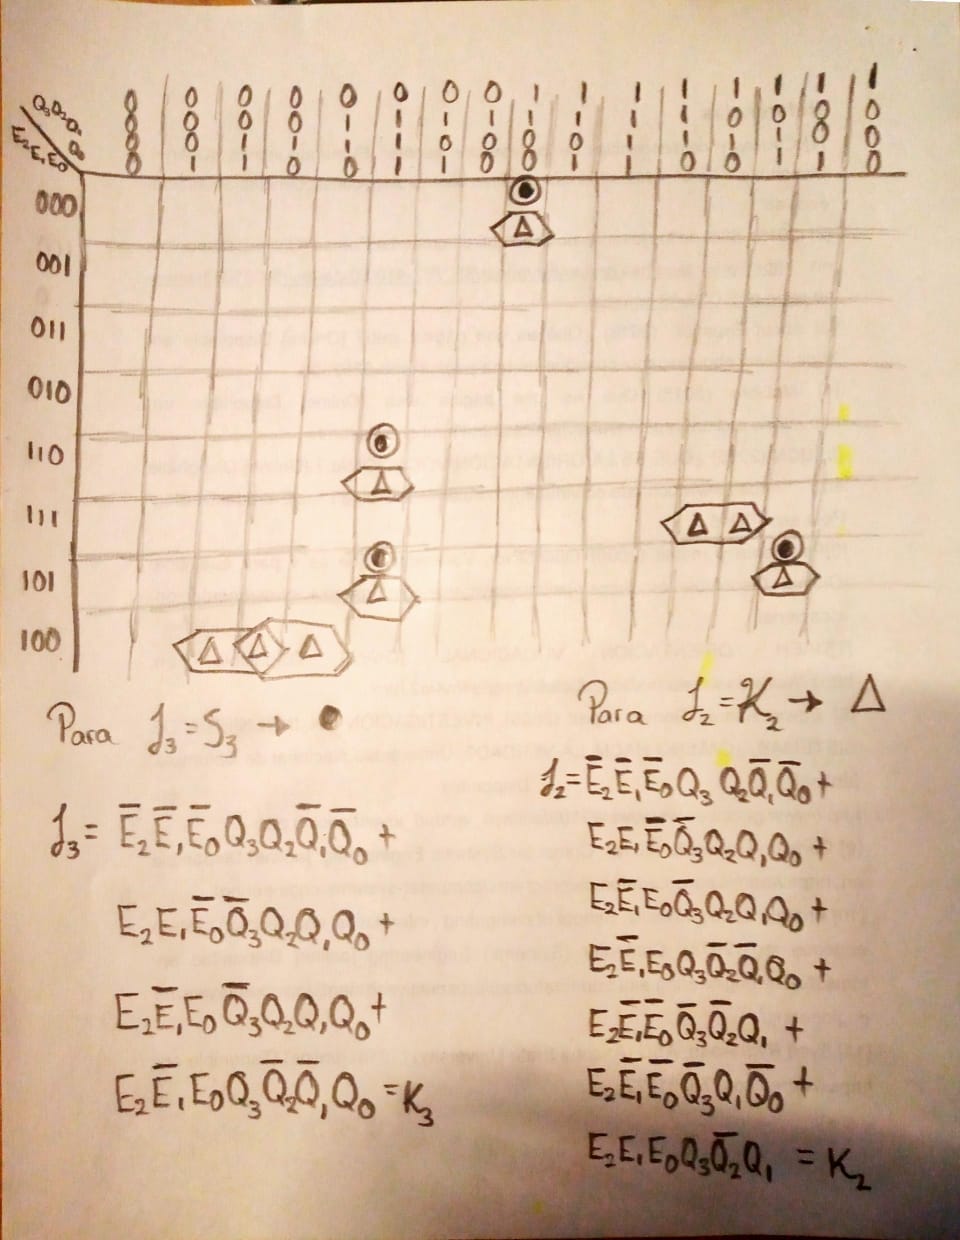 Q₃Q₂Q₁Q₀
E₂E₁E₀
0 0 0 0 0 0 0 0 1 1 1 1 1 1 1 1
0 0 0 0 1 1 1 1 1 1 1 1 0 0 0 0
0 0 1 1 1 1 0 0 0 0 1 1 1 1 0 0
0 1 1 0 0 1 1 0 0 1 1 0 0 1 1 0
000
001
011
010
110
111
101
100
Para J₃=S₃ → ●
J₃= E̅₂E̅₁E̅₀Q₃Q₂Q̅₁Q̅₀ +
E₂E₁E̅₀Q̅₃Q₂Q₁Q₀ +
E₂E̅₁E₀Q̅₃Q₂Q₁Q₀ +
E₂E̅₁E₀Q₃Q̅₂Q̅₁Q₀ = K₃
Para J₂=K₂ → Δ
J₂= E̅₂E̅₁E̅₀Q₃Q₂Q̅₁Q̅₀ +
E₂E₁E̅₀Q̅₃Q₂Q₁Q₀ +
E₂E̅₁E₀Q̅₃Q₂Q₁Q₀ +
E₂E̅₁E₀Q₃Q̅₂Q̅₁Q₀ +
E₂E̅₁E̅₀Q̅₃Q̅₂Q₁ +
E₂E̅₁E̅₀Q̅₃Q₁Q̅₀ +
E₂E₁E₀Q₃Q̅₂Q₁ = K₂